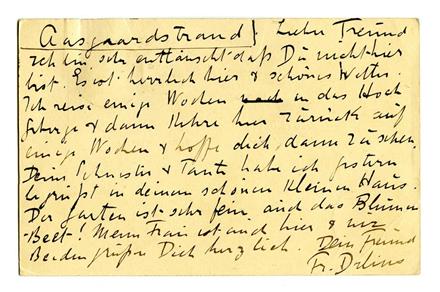 Aasgaardstrand! Lieber Freund
Ich bin sehr enttäuscht daß Du nicht hier
bist. Es ist herrlich hier & schönes Wetter.
Ich reise einige Wochen in das Hoch
Gebirge & dann kehre hier zurück auf
einige Wochen & hoffe dich dann zu sehen.
Deine Schwester & Tante habe ich gestern
begrüßt in deinem schönen kleinen Haus.
Der Garten ist sehr fein, auch das Blumen
Beet! Meine Frau ist auch hier & wir
Beiden grüßen Dich herzlich. Dein Freund
Fr. Delius